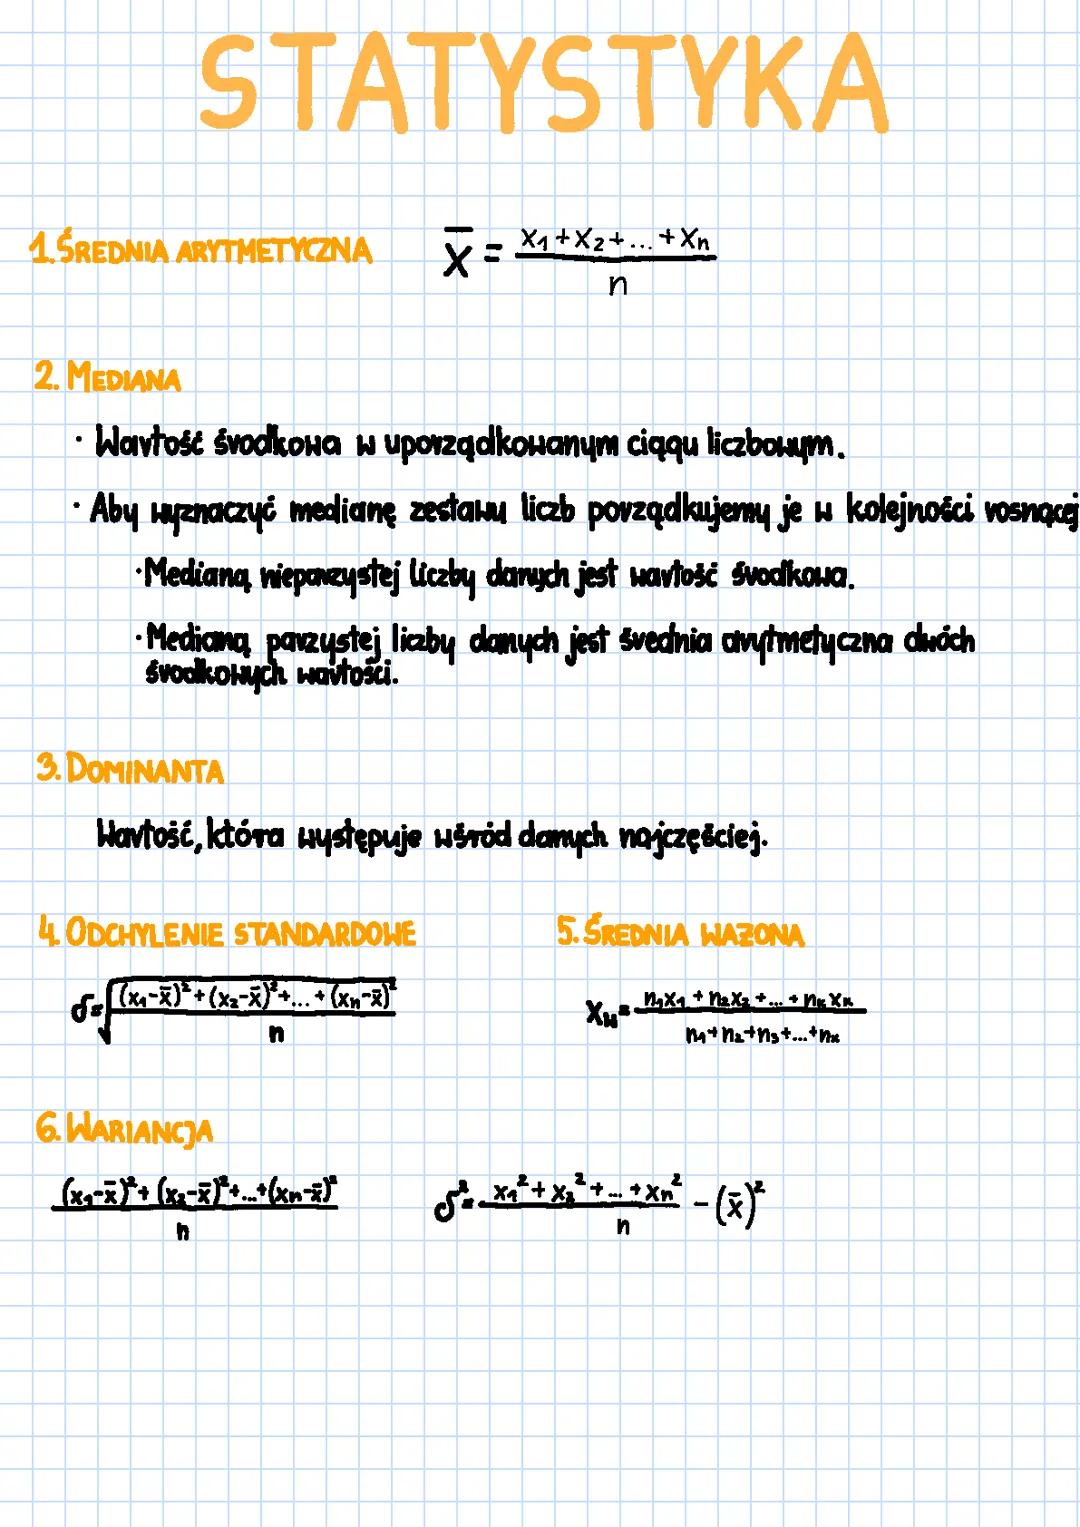 STATYSTYKA
1. ŚREDNIA ARYTMETYCZNA x̄ = (x₁+x₂+...+xₙ)/n
2. MEDIANA
· Wartość środkowa w uporządkowanym ciągu liczbowym.
· Aby wyznaczyć medianę zestawu liczb porządkujemy je w kolejności rosnącej
· Medianą nieparzystej liczby danych jest wartość środkowa.
· Medianą parzystej liczby danych jest średnia arytmetyczna dwóch
środkowych wartości.
3. DOMINANTA
Wartość, która występuje wśród danych najczęściej.
4. ODCHYLENIE STANDARDOWE
δ = √(((x₁-x̄)²+(x₂-x̄)²+...+(xₙ-x̄)²)/n)
5. ŚREDNIA WAŻONA
x_w = (n₁x₁+n₂x₂+...+nₖxₖ)/(n₁+n₂+n₃+...+nₖ)
6. WARIANCJA
((x₁-x̄)²+(x₂-x̄)²+...+(xₙ-x̄)²)/n δ² = (x₁²+x₂²+...+xₙ²)/n - (x̄)²